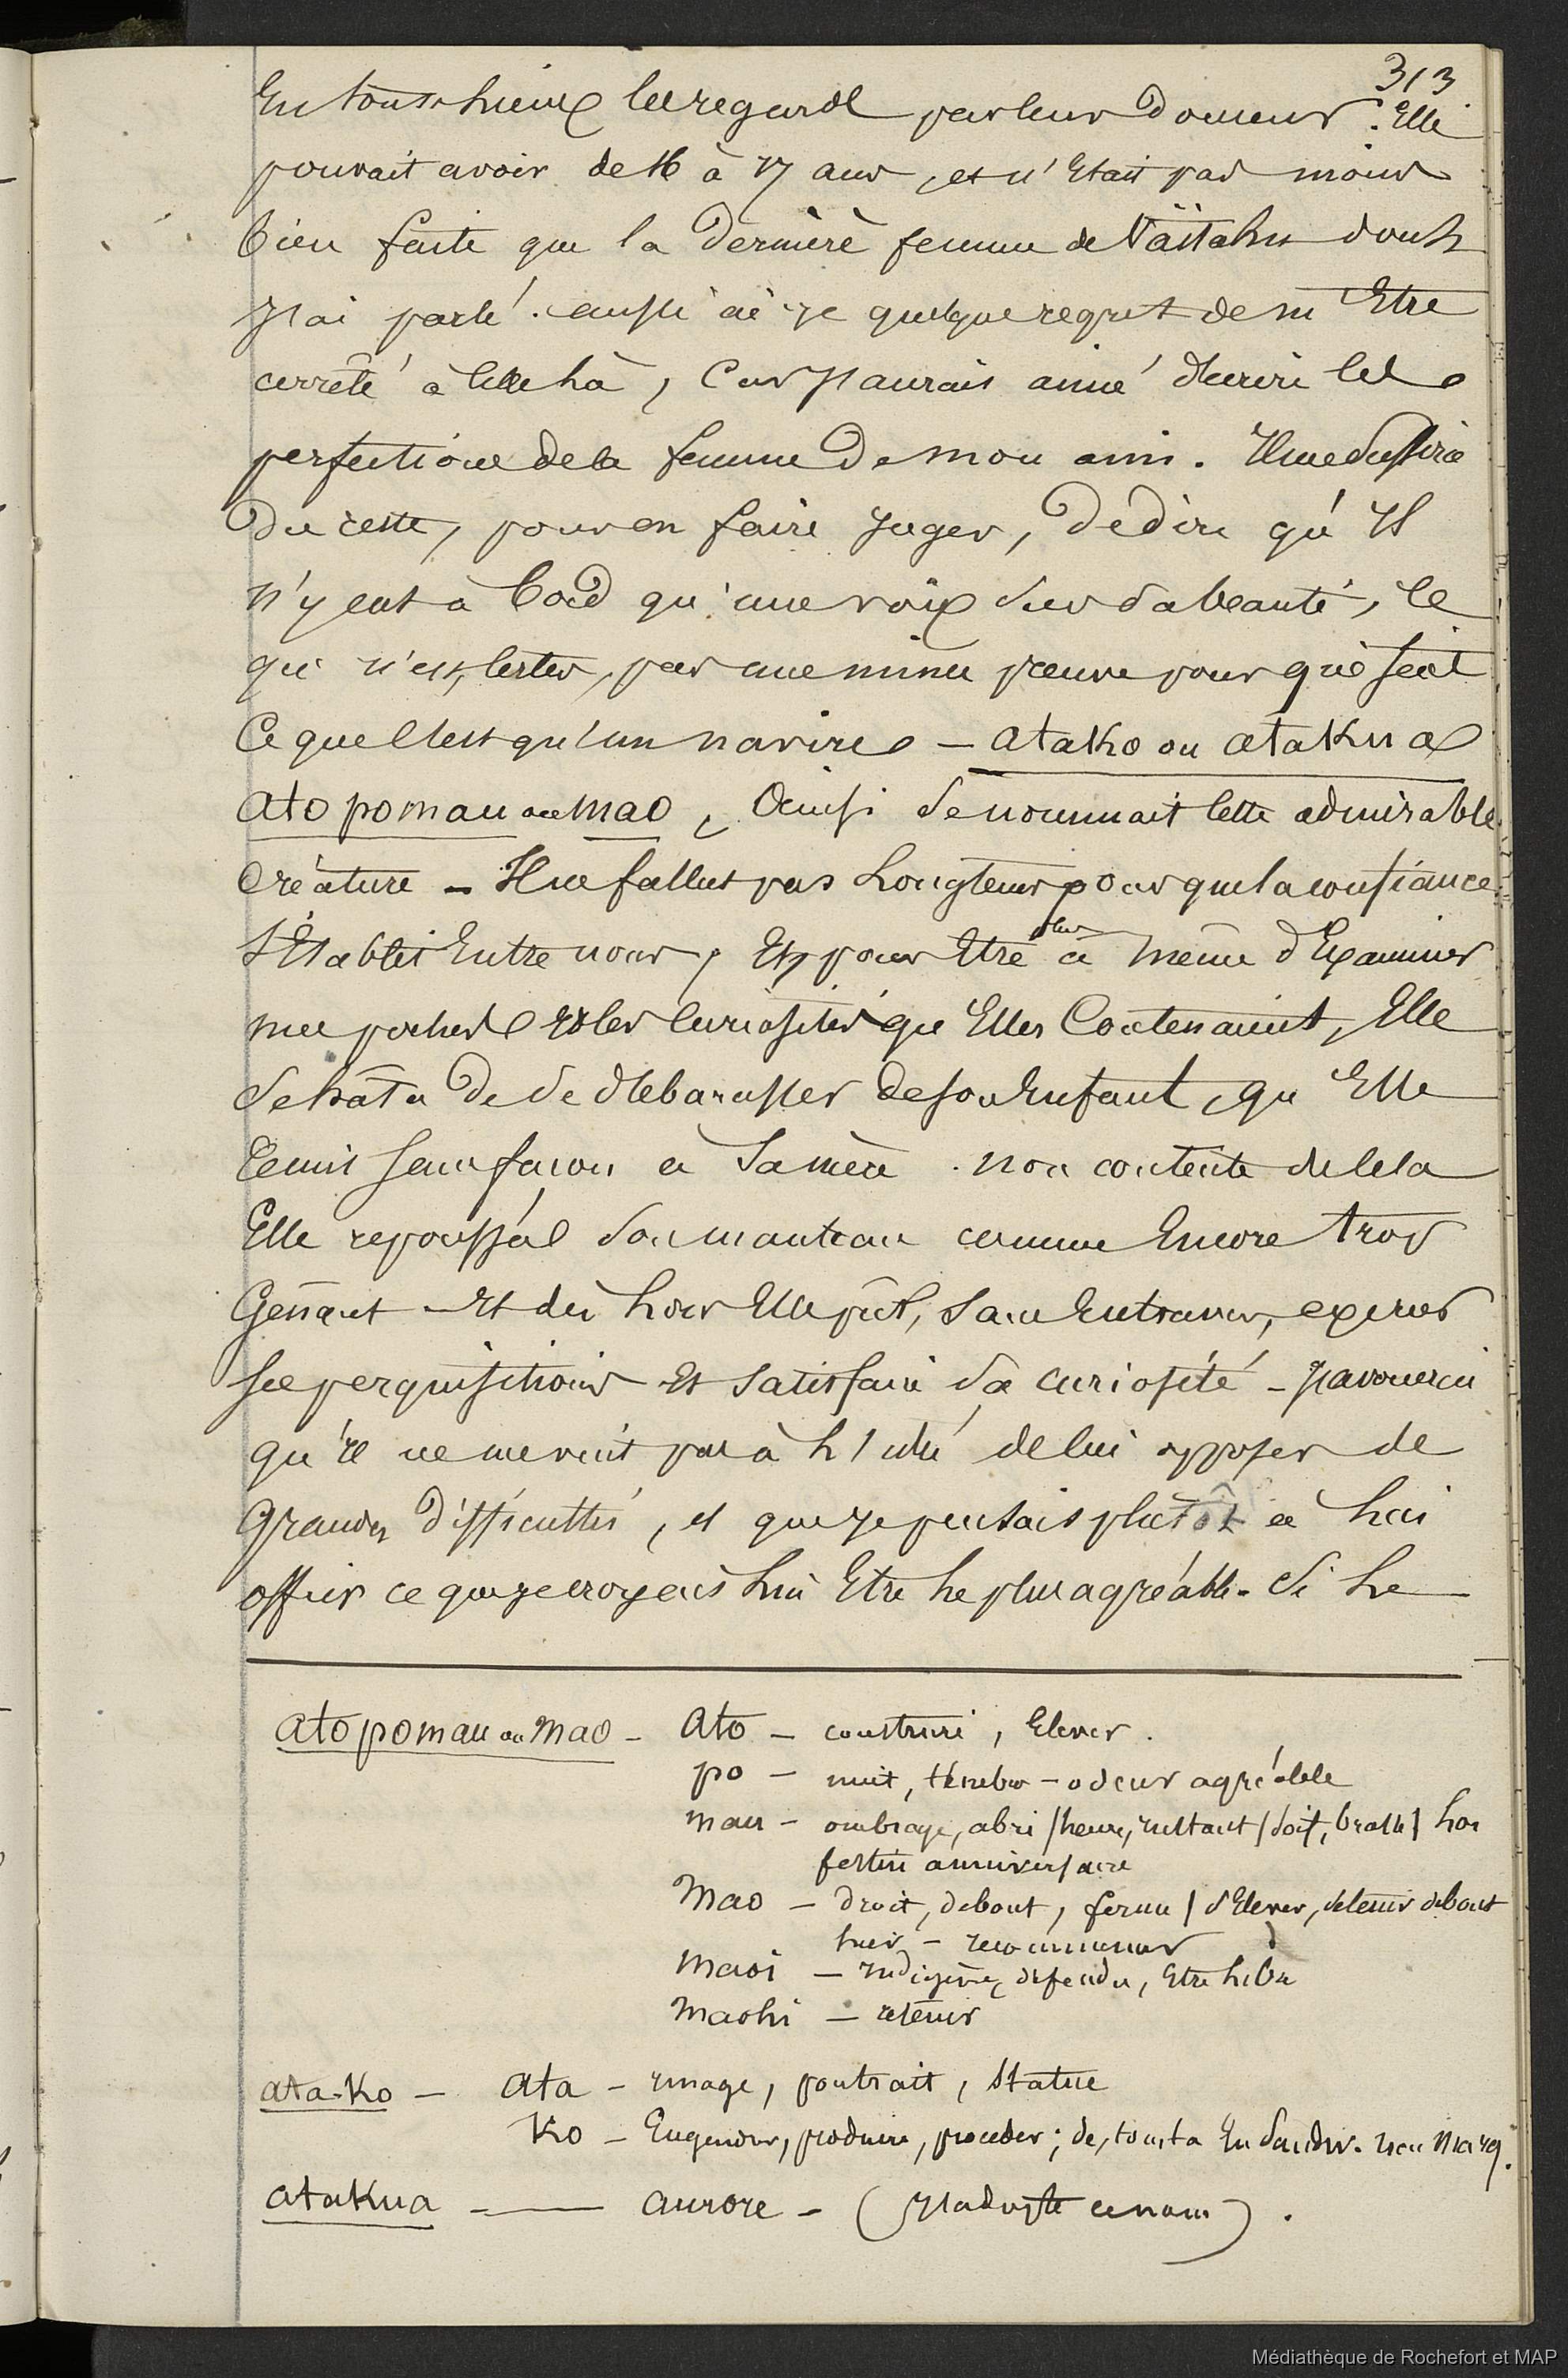 313
En tous lieux les regards par leur douceur. Elle
pouvait avoir de 16 à 17 ans, et n'Etait pas moins
bien faite que la dernière femme de Väitahu dont
J'ai parlé. aussi ai-je quelque regret de m'Etre
arrêté à Celle là, Car J'aurais aimé décrire les
perfections de la femme de mon ami. Il me suffira
Du reste, pour en faire Juger, de dire qu'Il
n'y eut à bord qu'une voix sur sa beauté, Ce
qui n'est, Certes, pas une mince preuve pour qui sait
Ce que C'est qu'un navire – Atako ou Atakua
Ato pomau ou Mao, Ainsi se nommait Cette admirable
Créature – Il ne fallut pas Longtems pour que la confiance
S'Etablit Entre nous, Et, pour Etre plus à même d'Examiner
mes poches Et les Curiosités que Elles Contenaient, Elle
Se hâta De se débarasser de son Enfant, qu'Elle
Remit sans façon à Sa mère. Non contente de Cela
Elle repoussa son manteau comme Encore trop
Gênant – Et dès Lors Elle pût, Sans Entraves, exercer
Ses perquisitions Et Satisfaire sa curiosité – J'avouerai
qu'il ne me vint pas à L'idée de lui opposer de
Grandes Difficultés, et que je pensais plutôt à Lui
offrir ce que je croyais Lui Etre Le plus agréable. Si Le
Ato pomau ou Mao – Ato – construire, Elever.
po – nuit, ténèbres – odeur agréable
mau – ombrage, abri / heure, instant / soif, / Lou
festin anniversaire
Mao – droit, debout, ferme / s'Elever, se tenir debout
hier – recommencer
Maoi – Indigène, défendu, Etre Libre
Maohi – retenir
Ata-Ko – Ata – Image, portrait, Statue
Ko – Engendrer, produire, procéder; de,
Atakua — Aurore – (J'adopte ce nom).
Médiathèque de Rochefort et MAP